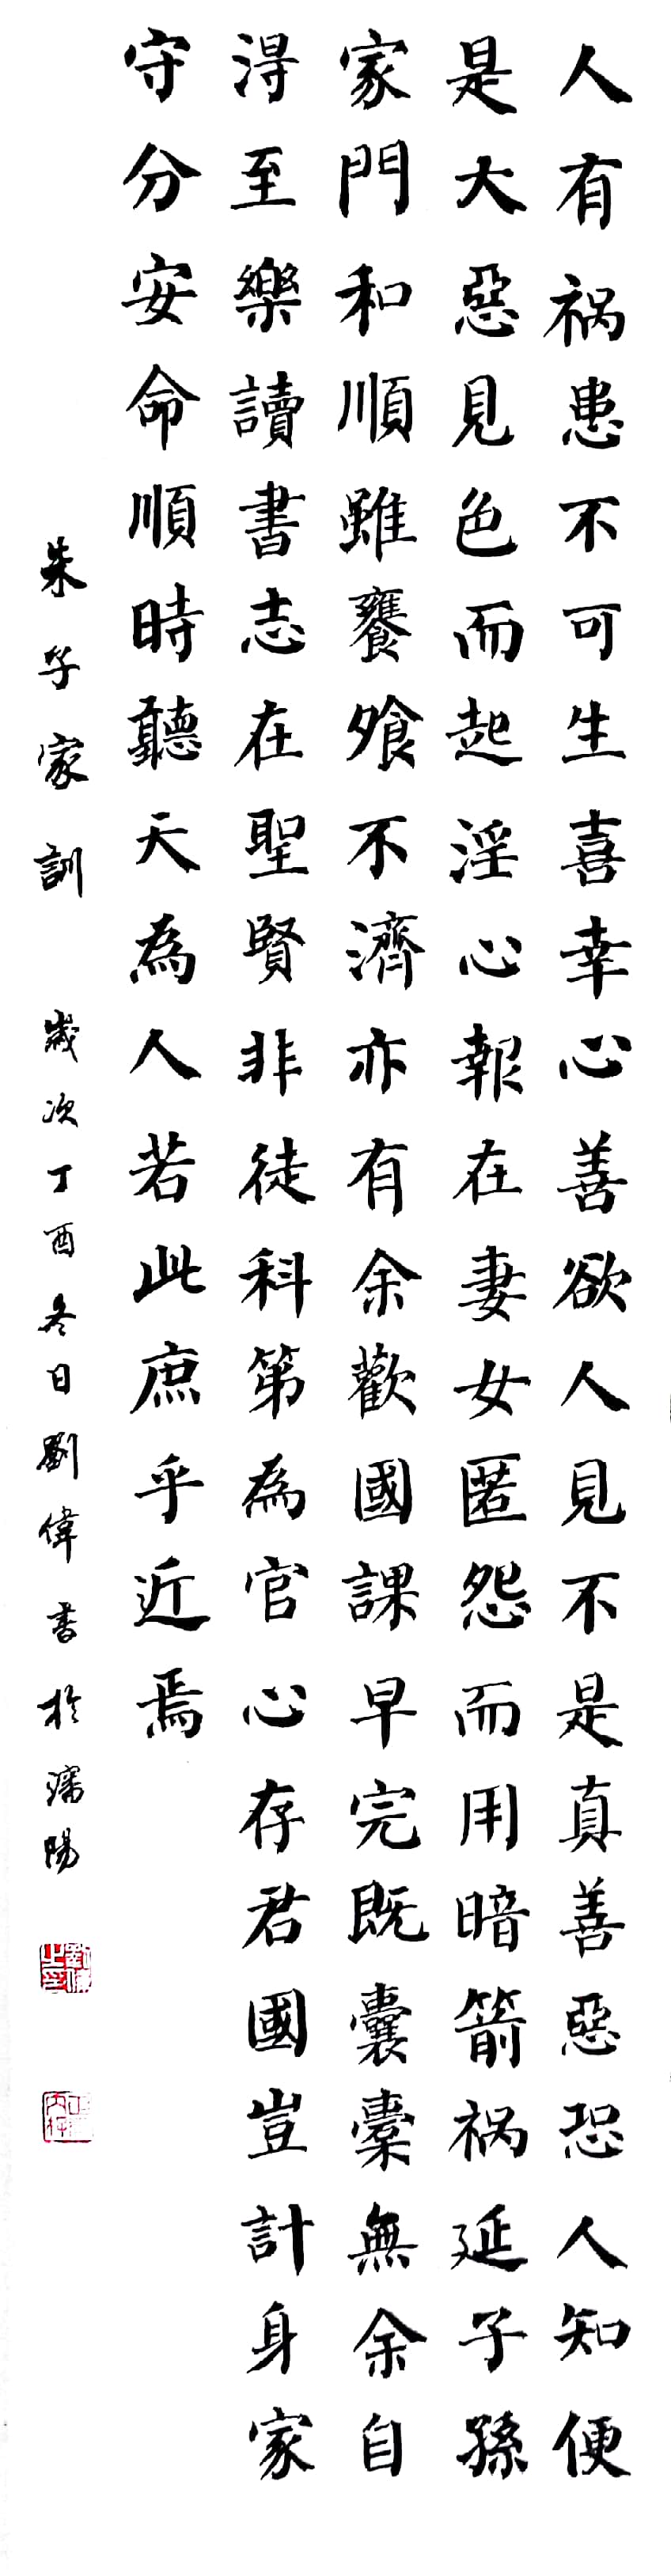 人有祸患不可生喜幸心善欲人見不是真善惡恐人知便
是大惡見色而起淫心報在妻女匿怨而用暗箭祸延子孫
家門和順雖饔飧不濟亦有余歡國課早完既囊橐無余自
淂至樂讀書志在聖賢非徒科第為官心存君國豈計身家
守分安命順時聽天為人若此庶乎近焉
朱子家訓 歲次丁酉冬日劉偉書於瀋陽